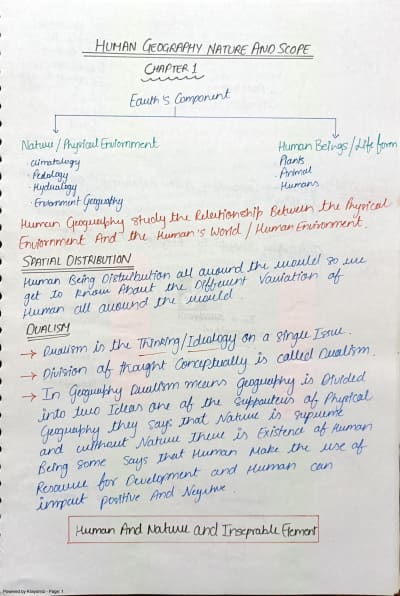 HUMAN GEOGRAPHY NATURE AND SCOPE
CHAPTER 1
Earth's Component
Nature / Physical Enviornment
· Climatology
· Pedology
· Hydrology
· Environment Geography
Human Beings / Life form
· Plants
· Animal
· Humans
Human Geography Study the Relationship Between the Physical
Enviornment And the Human's World / Human Environment.
SPATIAL DISTRIBUTION
Human Being Distribution all around the would so we
get to know About the Different Variation of
Human all around the would.
DUALISM
→ Dualism is the Thinking/Ideology on a Single Issue.
→ Division of thought Conceptually is called Dualism.
→ In Geography Dualism means Geography is Divided
into two Ideas one of the Supporters of Physical
Geography they Says that Nature is Supreme
and without Nature there is Existence of Human
Being Some Says that Human Make the use of
Resource for Development and Human can
impact positive And Negitve.
Human And Nature and Inseprable Element
Powered by Kaagaz - Page: 1